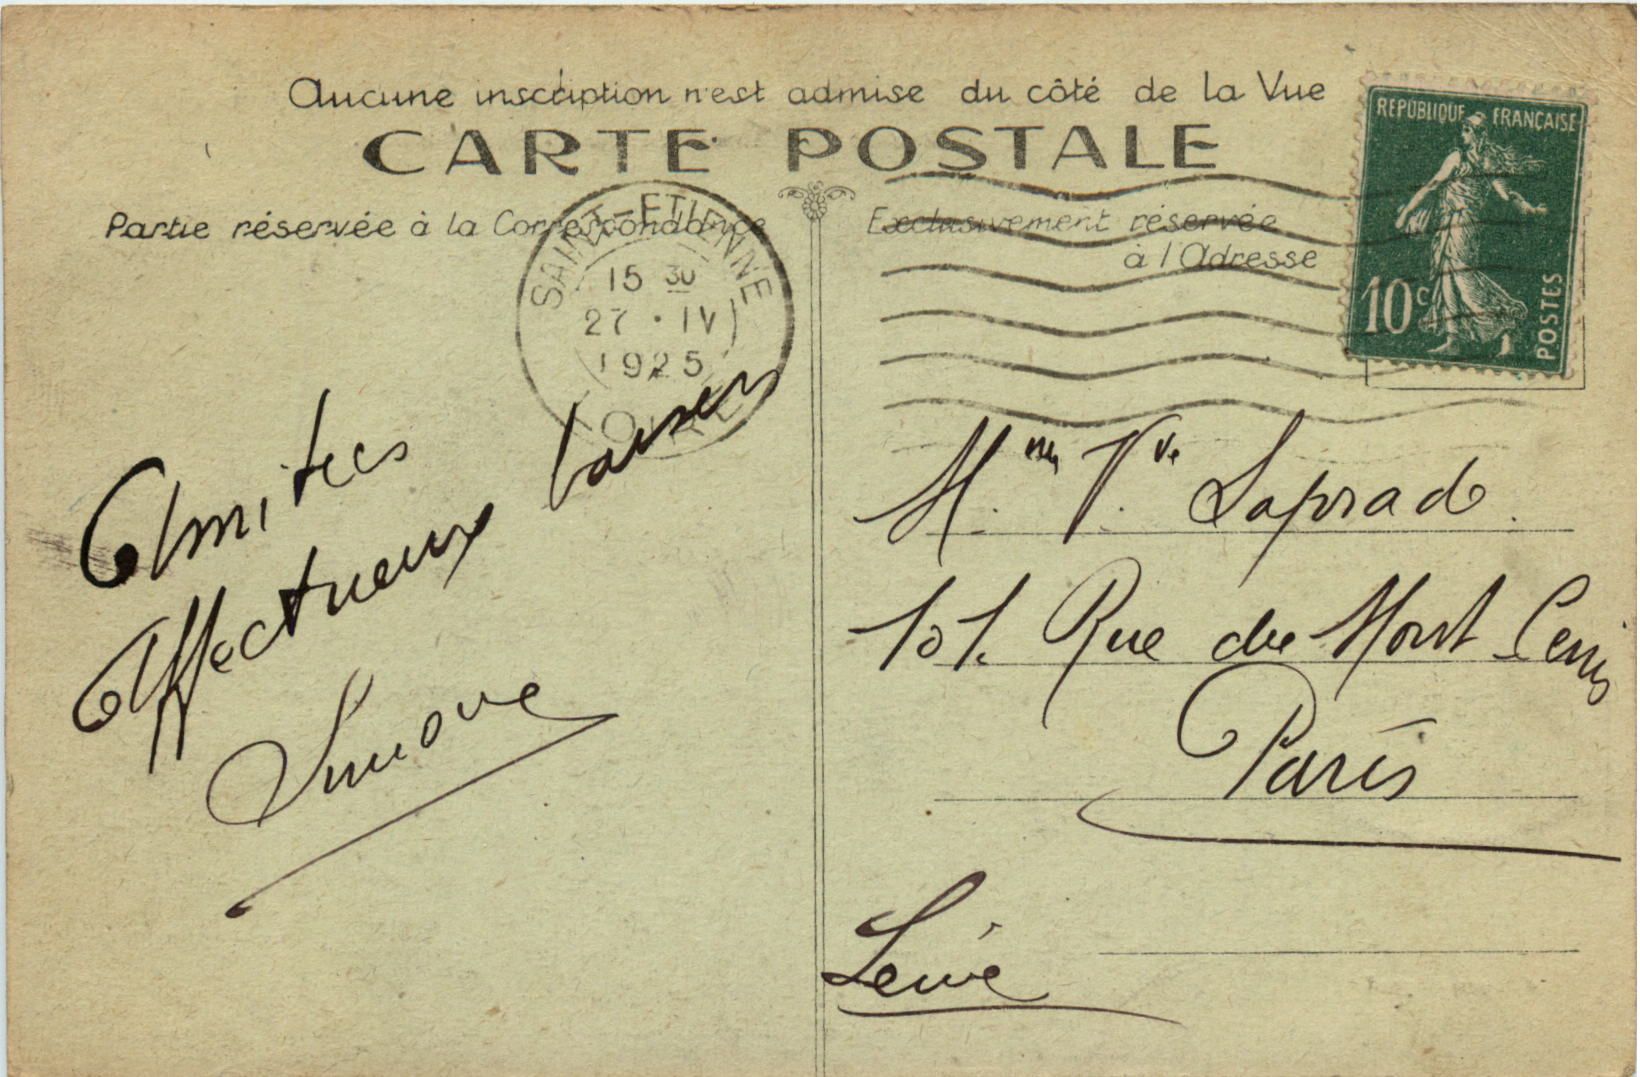 Aucune inscription n'est admise du côté de la Vue
CARTE POSTALE
Partie réservée à la Correspondance
Exclusivement réservée
à l'Adresse
REPUBLIQUE FRANÇAISE
10c
POSTES
SAINT-ETIENNE
15 30
27 · IV
1925
LOIRE
Amitiés
Affectueux baisers
Simone
Mme Vve Laprade.
101. Rue du Mont Cenis
Paris